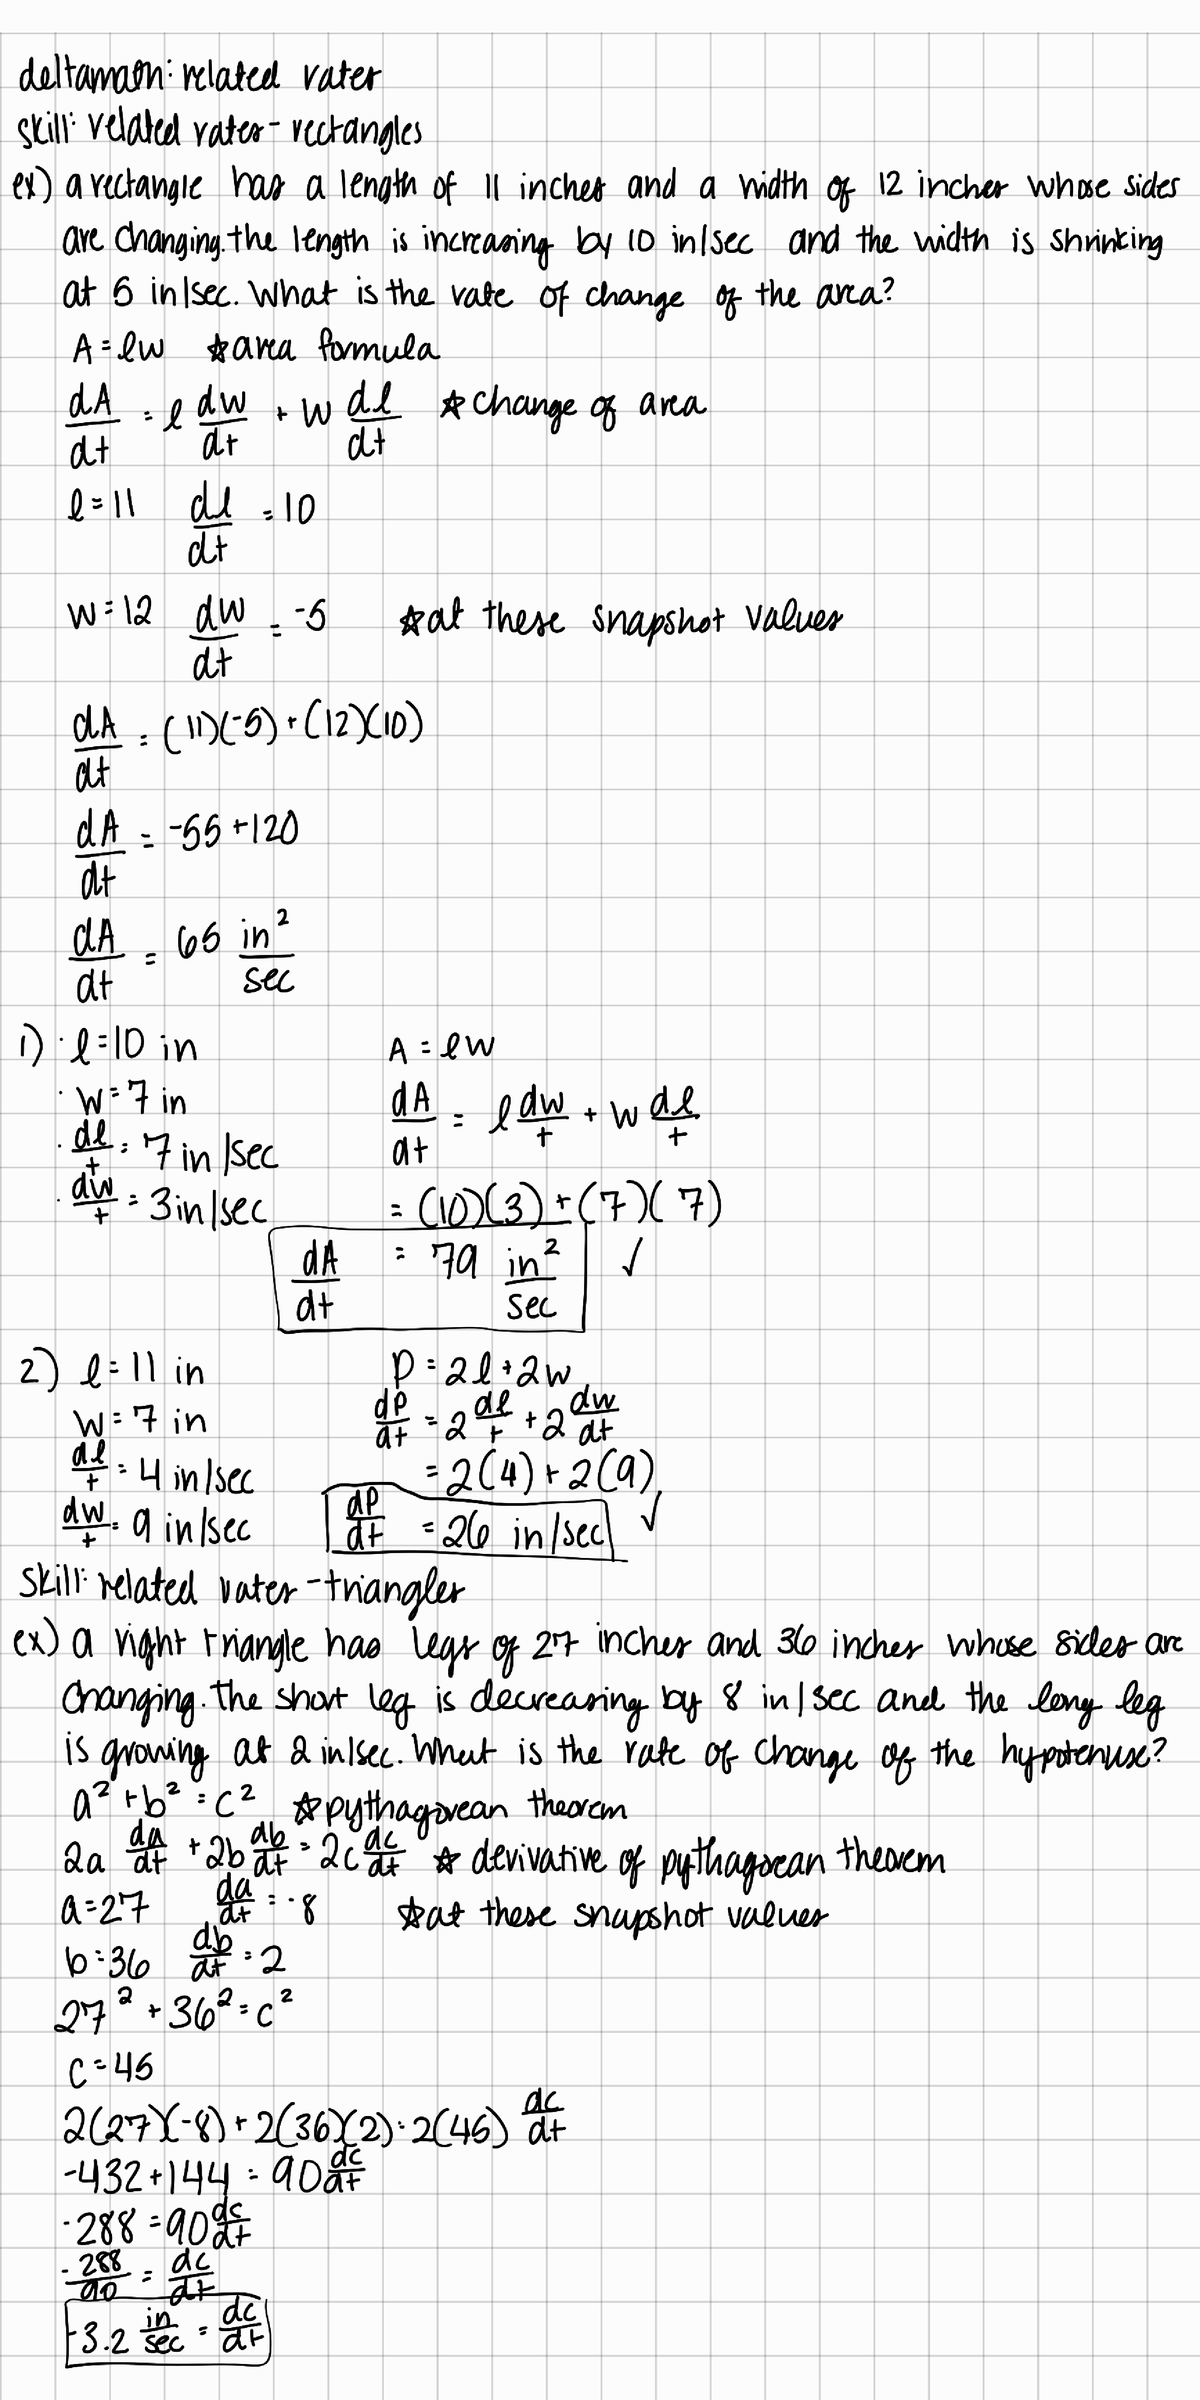 deltamath: related rates
skill: related rates - rectangles
ex) a rectangle has a length of 11 inches and a width of 12 inches whose sides
are changing. the length is increasing by 10 in/sec and the width is shrinking
at 5 in/sec. What is the rate of change of the area?
A = lw ☆area formula
dA/dt = l dw/dt + w dl/dt ☆change of area
l = 11 dl/dt = 10
w = 12 dw/dt = -5 ☆at these snapshot values
dA/dt = (11)(-5) + (12)(10)
dA/dt = -55 + 120
dA/dt = 65 in²/sec
1) · l = 10 in A = lw
· w = 7 in dA/dt = l dw/t + w dl/t
· dl/t = 7 in/sec
· dw/t = 3 in/sec = (10)(3) + (7)(7)
dA/dt = 79 in²/sec ✓
2) l = 11 in P = 2l + 2w
w = 7 in dP/dt = 2 dl/t + 2 dw/dt
dl/t = 4 in/sec = 2(4) + 2(9)
dw/t = 9 in/sec dP/dt = 26 in/sec ✓
skill: related rates - triangles
ex) a right triangle has legs of 27 inches and 36 inches whose sides are
changing. The short leg is decreasing by 8 in/sec and the long leg
is growing at 2 in/sec. What is the rate of change of the hypotenuse?
a² + b² = c² ☆pythagorean theorem
2a da/dt + 2b db/dt = 2c dc/dt ☆ derivative of pythagorean theorem
a = 27 da/dt = -8 ☆at these snapshot values
b = 36 db/dt = 2
27² + 36² = c²
c = 45
2(27)(-8) + 2(36)(2) = 2(45) dc/dt
-432 + 144 = 90 dc/dt
-288 = 90 dc/dt
-288/90 = dc/dt
-3.2 in/sec = dc/dt